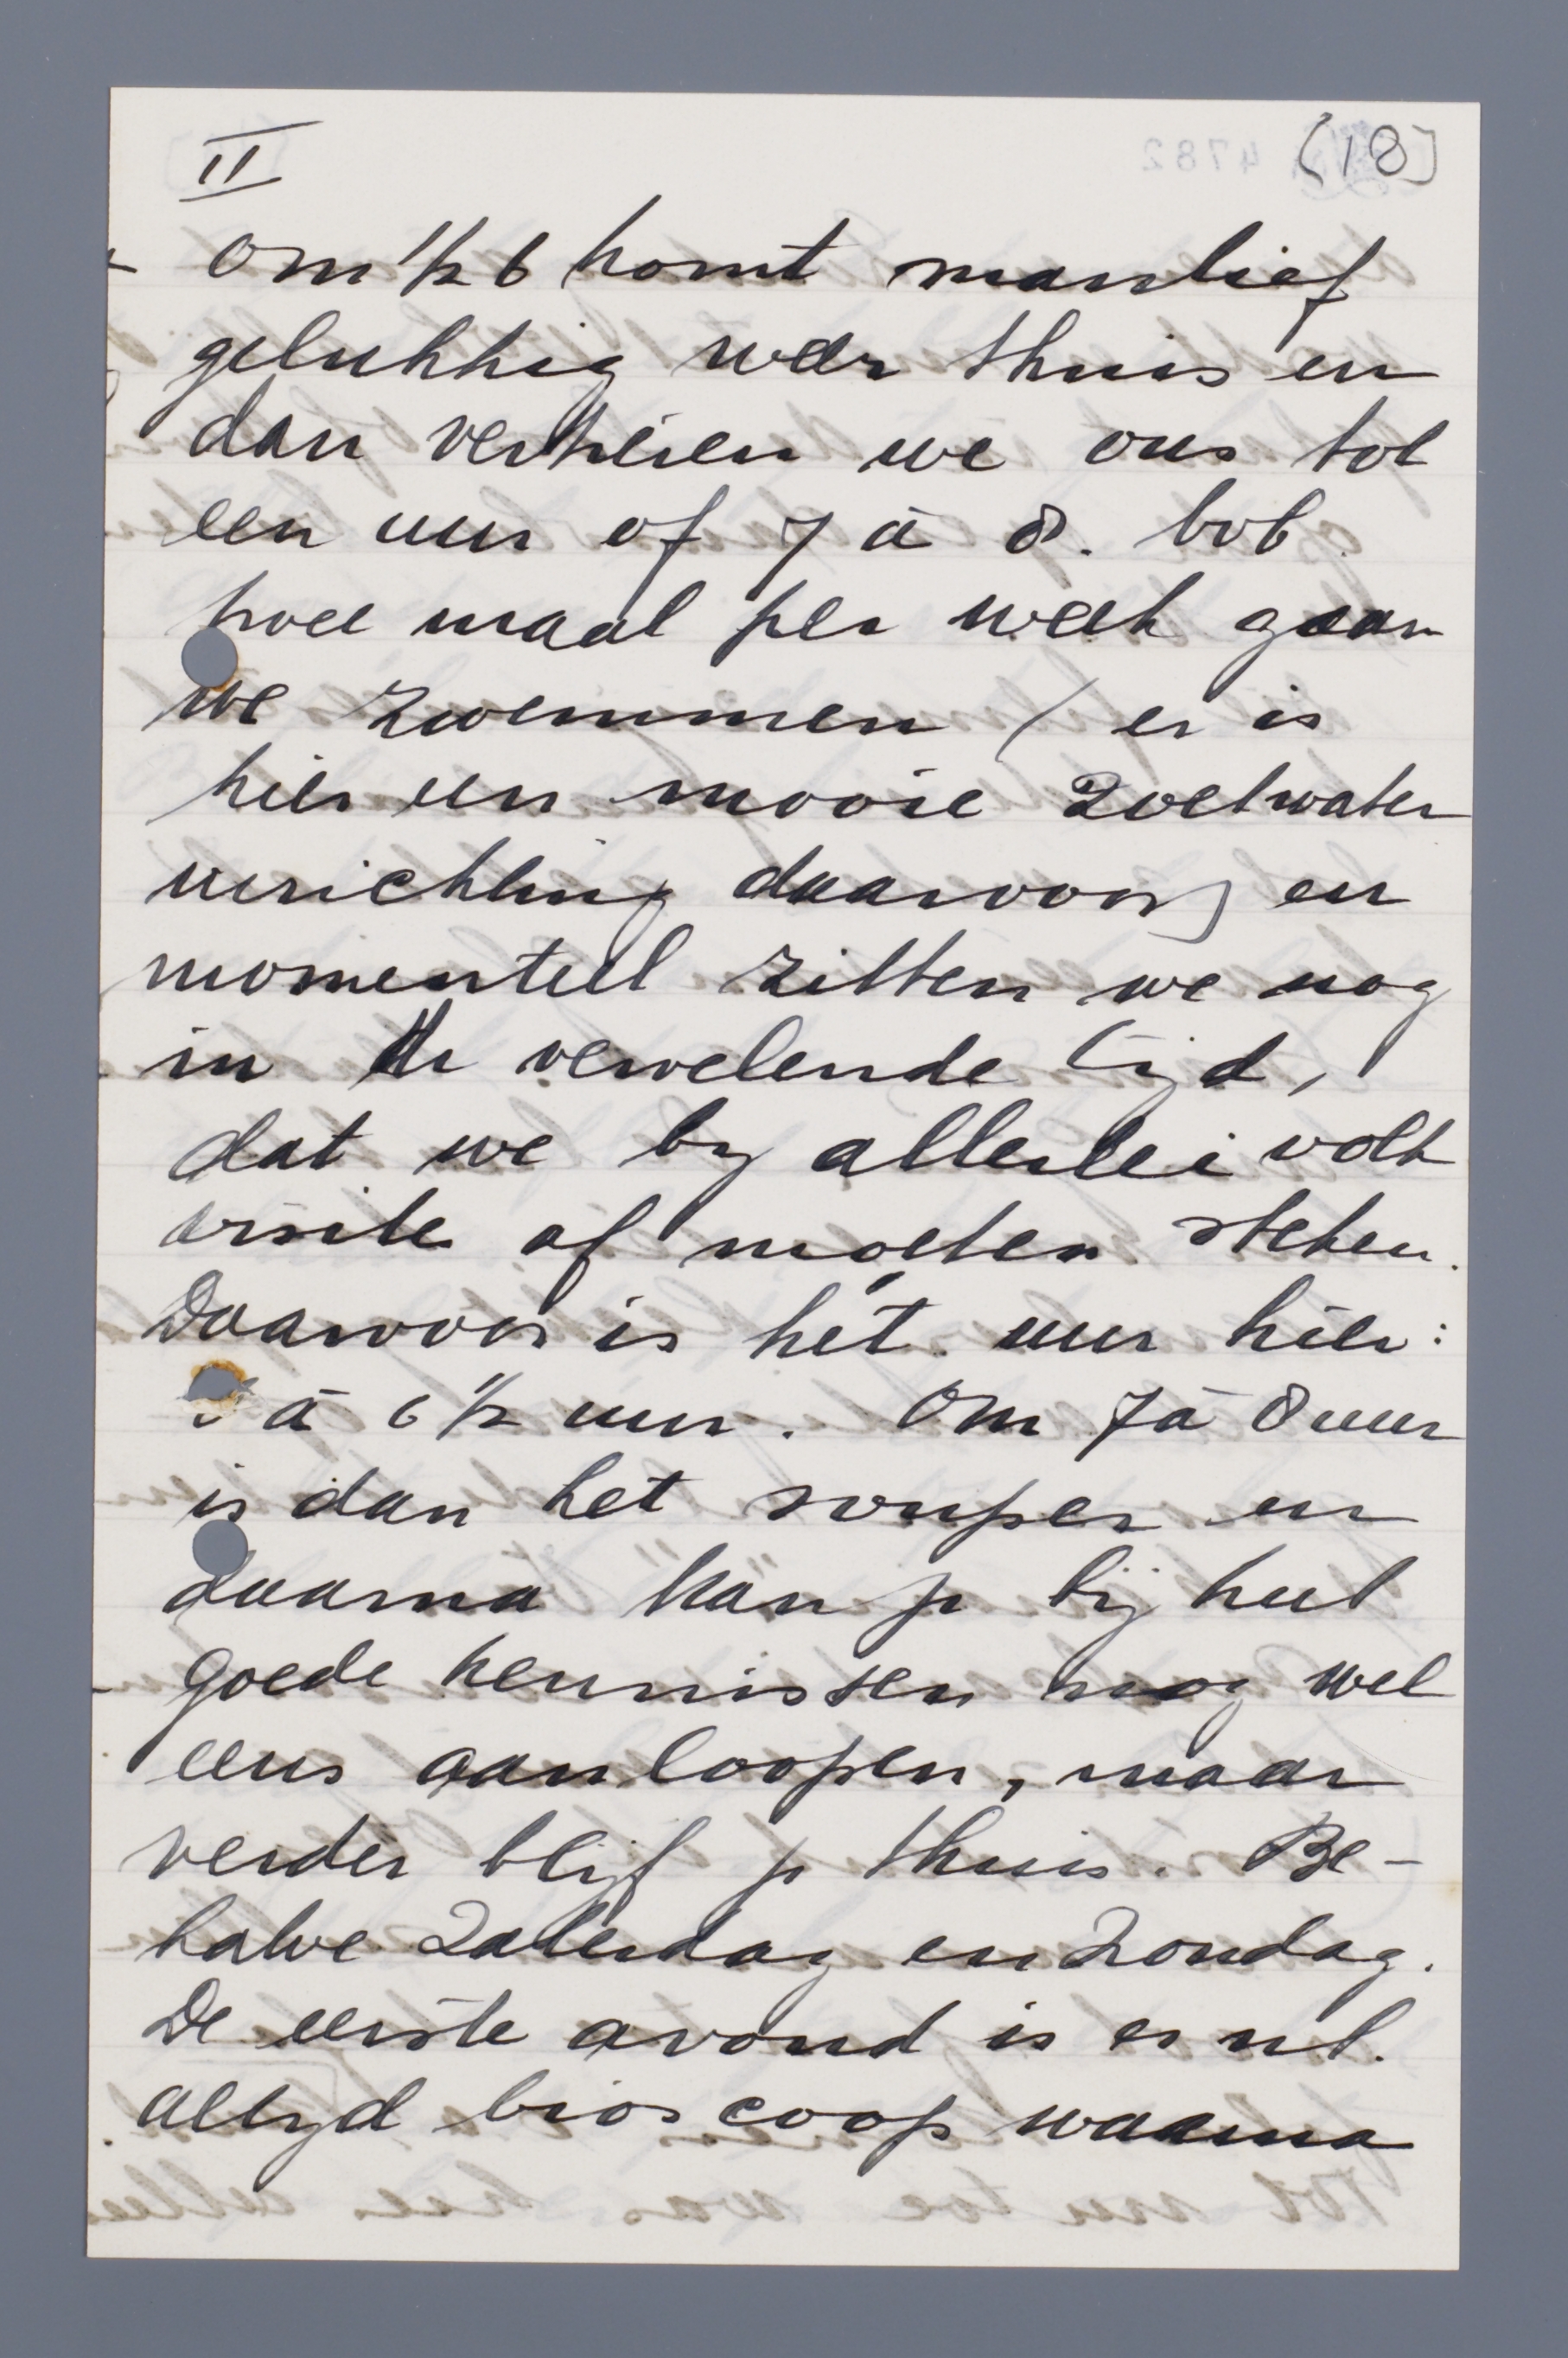 II
[18]
4782
Om ½ 6 komt manlief
gelukkig weer thuis en
dan verkleeden we ons tot
een uur of 7 à 8.
twee maal per week gaan
we zwemmen (er is
hier een mooie zoetwater
inrichting daarvoor) en
momenteel zitten we nog
in de vervelende tijd,
dat we by allerlei volk
visite af moeten steken.
Daarvoor is hét uur hier:
à 6 ½ uur. Om 7 à 8 uur
is dan het souper en
daarna kan je bij heel
goede kennissen nog wel
eens aanloopen, maar
verder blijf je thuis. Be-
halve Zaterdag en Zondag.
De eerste avond is er nl.
altyd bioscoop waarna